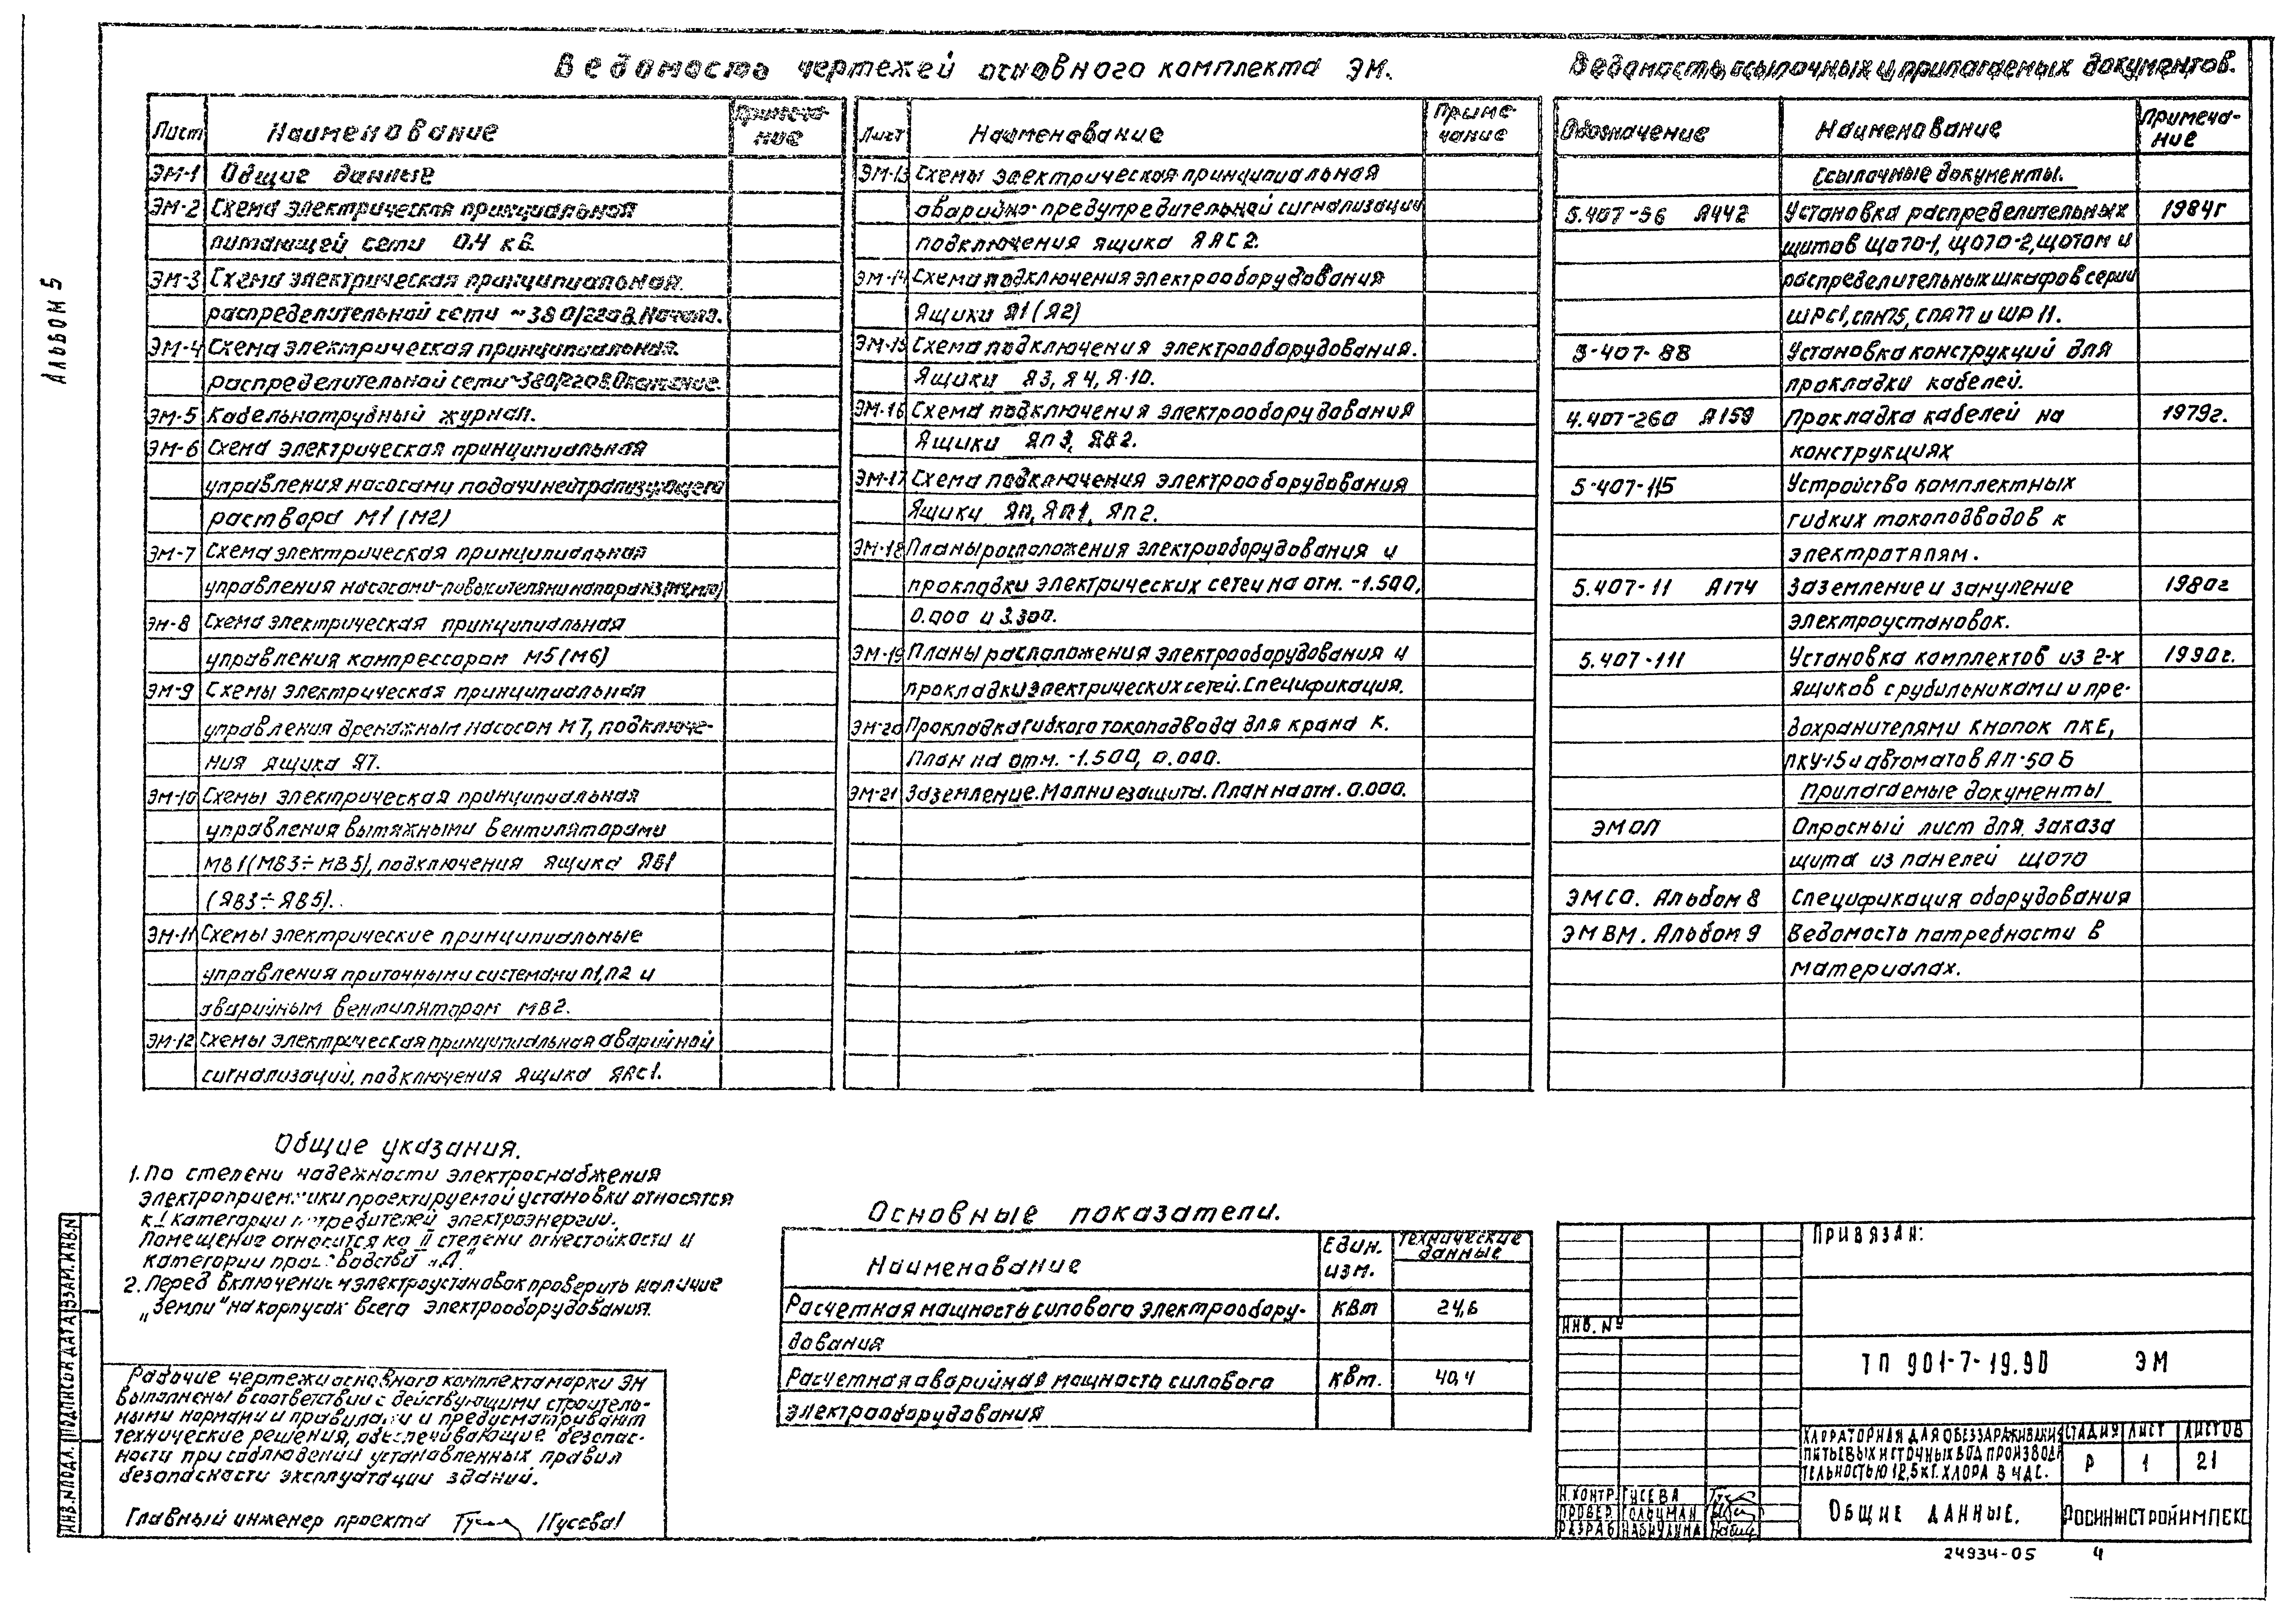 Альбом 5
Ведомость чертежей основного комплекта ЭМ.
Лист Наименование Примеча-
ние
ЭМ-1 Общие данные
ЭМ-2 Схема электрическая принципиальная
питающей сети 0.4 кв.
ЭМ-3 Схема электрическая принципиальная.
распределительной сети ~380/220В. Начало.
ЭМ-4 Схема электрическая принципиальная.
распределительной сети ~380/220В. Окончание.
ЭМ-5 Кабельнотрубный журнал.
ЭМ-6 Схема электрическая принципиальная
управления насосами подачи нейтрализующего
раствора М1 (М2)
ЭМ-7 Схема электрическая принципиальная
управления насосами-повысителями напора
ЭМ-8 Схема электрическая принципиальная
управления компрессором М5 (М6)
ЭМ-9 Схемы электрическая принципиальная
управления дренажным насосом М7, подключе-
ния ящика Я7.
ЭМ-10 Схемы электрическая принципиальная
управления вытяжными вентиляторами
МВ1 (МВ3÷МВ5), подключения ящика ЯВ1
(ЯВ3÷ЯВ5).
ЭМ-11 Схемы электрические принципиальные
управления приточными системами П1, П2 и
аварийным вентилятором МВ2.
ЭМ-12 Схемы электрическая принципиальная аварийной
сигнализаций, подключения ящика ЯАС1.
Лист Наименование Приме-
чание
ЭМ-13 Схемы электрическая принципиальная
аварийно-предупредительной сигнализации
подключения ящика ЯАС2.
ЭМ-14 Схема подключения электрооборудования
Ящики Я1 (Я2)
ЭМ-15 Схема подключения электрооборудования.
Ящики Я3, Я4, Я-10.
ЭМ-16 Схема подключения электрооборудования
Ящики ЯП3, ЯВ2.
ЭМ-17 Схема подключения электрооборудования
Ящики ЯП, ЯП1, ЯП2.
ЭМ-18 Планы расположения электрооборудования и
прокладки электрических сетей на отм. -1.500,
0.000 и 3.300.
ЭМ-19 Планы расположения электрооборудования и
прокладки электрических сетей. Спецификация.
ЭМ-20 Прокладка гибкого токоподвода для крана К.
План на отм. -1.500, 0.000.
ЭМ-21 Заземление. Молниезащита. План на отм. 0.000.
Ведомость ссылочных и прилагаемых документов.
Обозначение Наименование Примеча-
ние
Ссылочные документы.
5.407-56 А442 Установка распределительных 1984г
щитов ЩО70-1, ЩО70-2, ЩО70М и
распределительных шкафов серии
ШРС1, СПМ75, СПА77 и ШР11.
5-407-88 Установка конструкций для
прокладки кабелей.
4.407-260 А159 Прокладка кабелей на 1979г.
конструкциях
5-407-115 Устройство комплектных
гибких токоподводов к
электроталям.
5.407-11 А174 Заземление и зануление 1980г
электроустановок.
5.407-111 Установка комплектов из 2-х 1990г.
ящиков с рубильниками и пре-
дохранителями кнопок ПКЕ,
ПКУ-15 и автоматов АП-50Б
Прилагаемые документы
ЭМОЛ Опросный лист для заказа
щита из панелей ЩО70
ЭМСО. Альбом 8 Спецификация оборудования
ЭМВМ. Альбом 9 Ведомость потребности в
материалах.
Общие указания.
1. По степени надежности электроснабжения
электроприемники проектируемой установки относятся
к I категории потребителей электроэнергии.
Помещение относится ко II степени огнестойкости и
категории производства „А"
2. Перед включением электроустановок проверить наличие
„земли" на корпусах всего электрооборудования.
Рабочие чертежи основного комплекта марки ЭМ
выполнены в соответствии с действующими строитель-
ными нормами и правилами и предусматривают
технические решения, обеспечивающие безопас-
ности при соблюдении установленных правил
безопасности эксплуатации зданий.
Главный инженер проекта /Гусева/
Основные показатели.
Наименование Един. изм. Технические данные
Расчетная мощность силового электрообору- кВт 24,6
дования
Расчетная аварийная мощность силового кВт. 40,4
электрооборудования
Привязан:
Инв. №
ТП 901-7-19.90 ЭМ
Хлораторная для обеззараживания
питьевых и сточных вод производи
тельностью 12,5 кг. хлора в час.
Стадия Лист Листов
Р 1 21
Н.контр. Гусева
Провер. Гольцман
Разраб. Набиулина
Общие данные.
Росинжстройимпекс
Инв.№ подл. Подпись и дата Взам.инв.№
24934-05 4